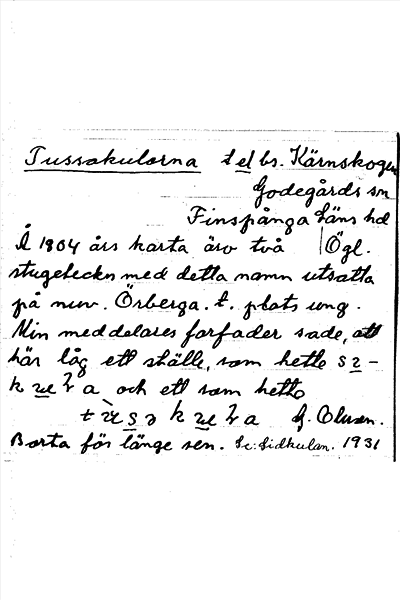 Tussakulorna t el bs. Kärnskogen
Godegårds sn
Finspånga läns hd
Å 1804 års karta äro två Ögl.
stugetecken med detta namn utsatta
på nuv. Örberga. t. plats ung.
Min meddelares forfader sade, att
här låg ett ställe, som hette
och ett som hette
G. Olsson.
Borta för länge sen. Se: Sidkulan. 1931